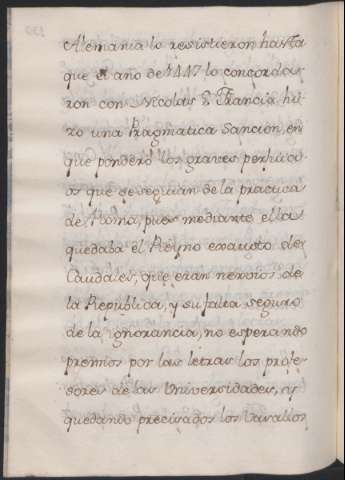 Alemania lo resistieron hasta
que el año de 1447 lo concorda-
ron con Nicolas 5. Francia hi-
zo una Pragmatica Sancion, en
que ponderó los graves perjuici-
os que se seguian de la practica
de Roma, pues mediante ellas
quedaba el Reyno exausto de
Caudales, que eran nervios de
la Republica, y su falta seguro
de la ignorancia, no esperando
premios por las letras los profe-
sores de las Universidades, ni
quedando precisados los Vasallos